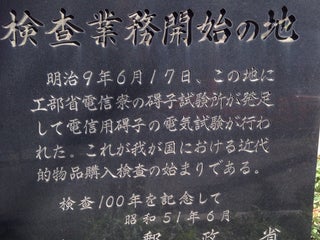 検査業務開始の地
明治9年6月17日、この地に
工部省電信寮の碍子試験所が発足
して電信用碍子の電気試験が行わ
れた。これが我が国における近代
的物品購入検査の始まりである。
検査100年を記念して
昭和51年6月
郵政省